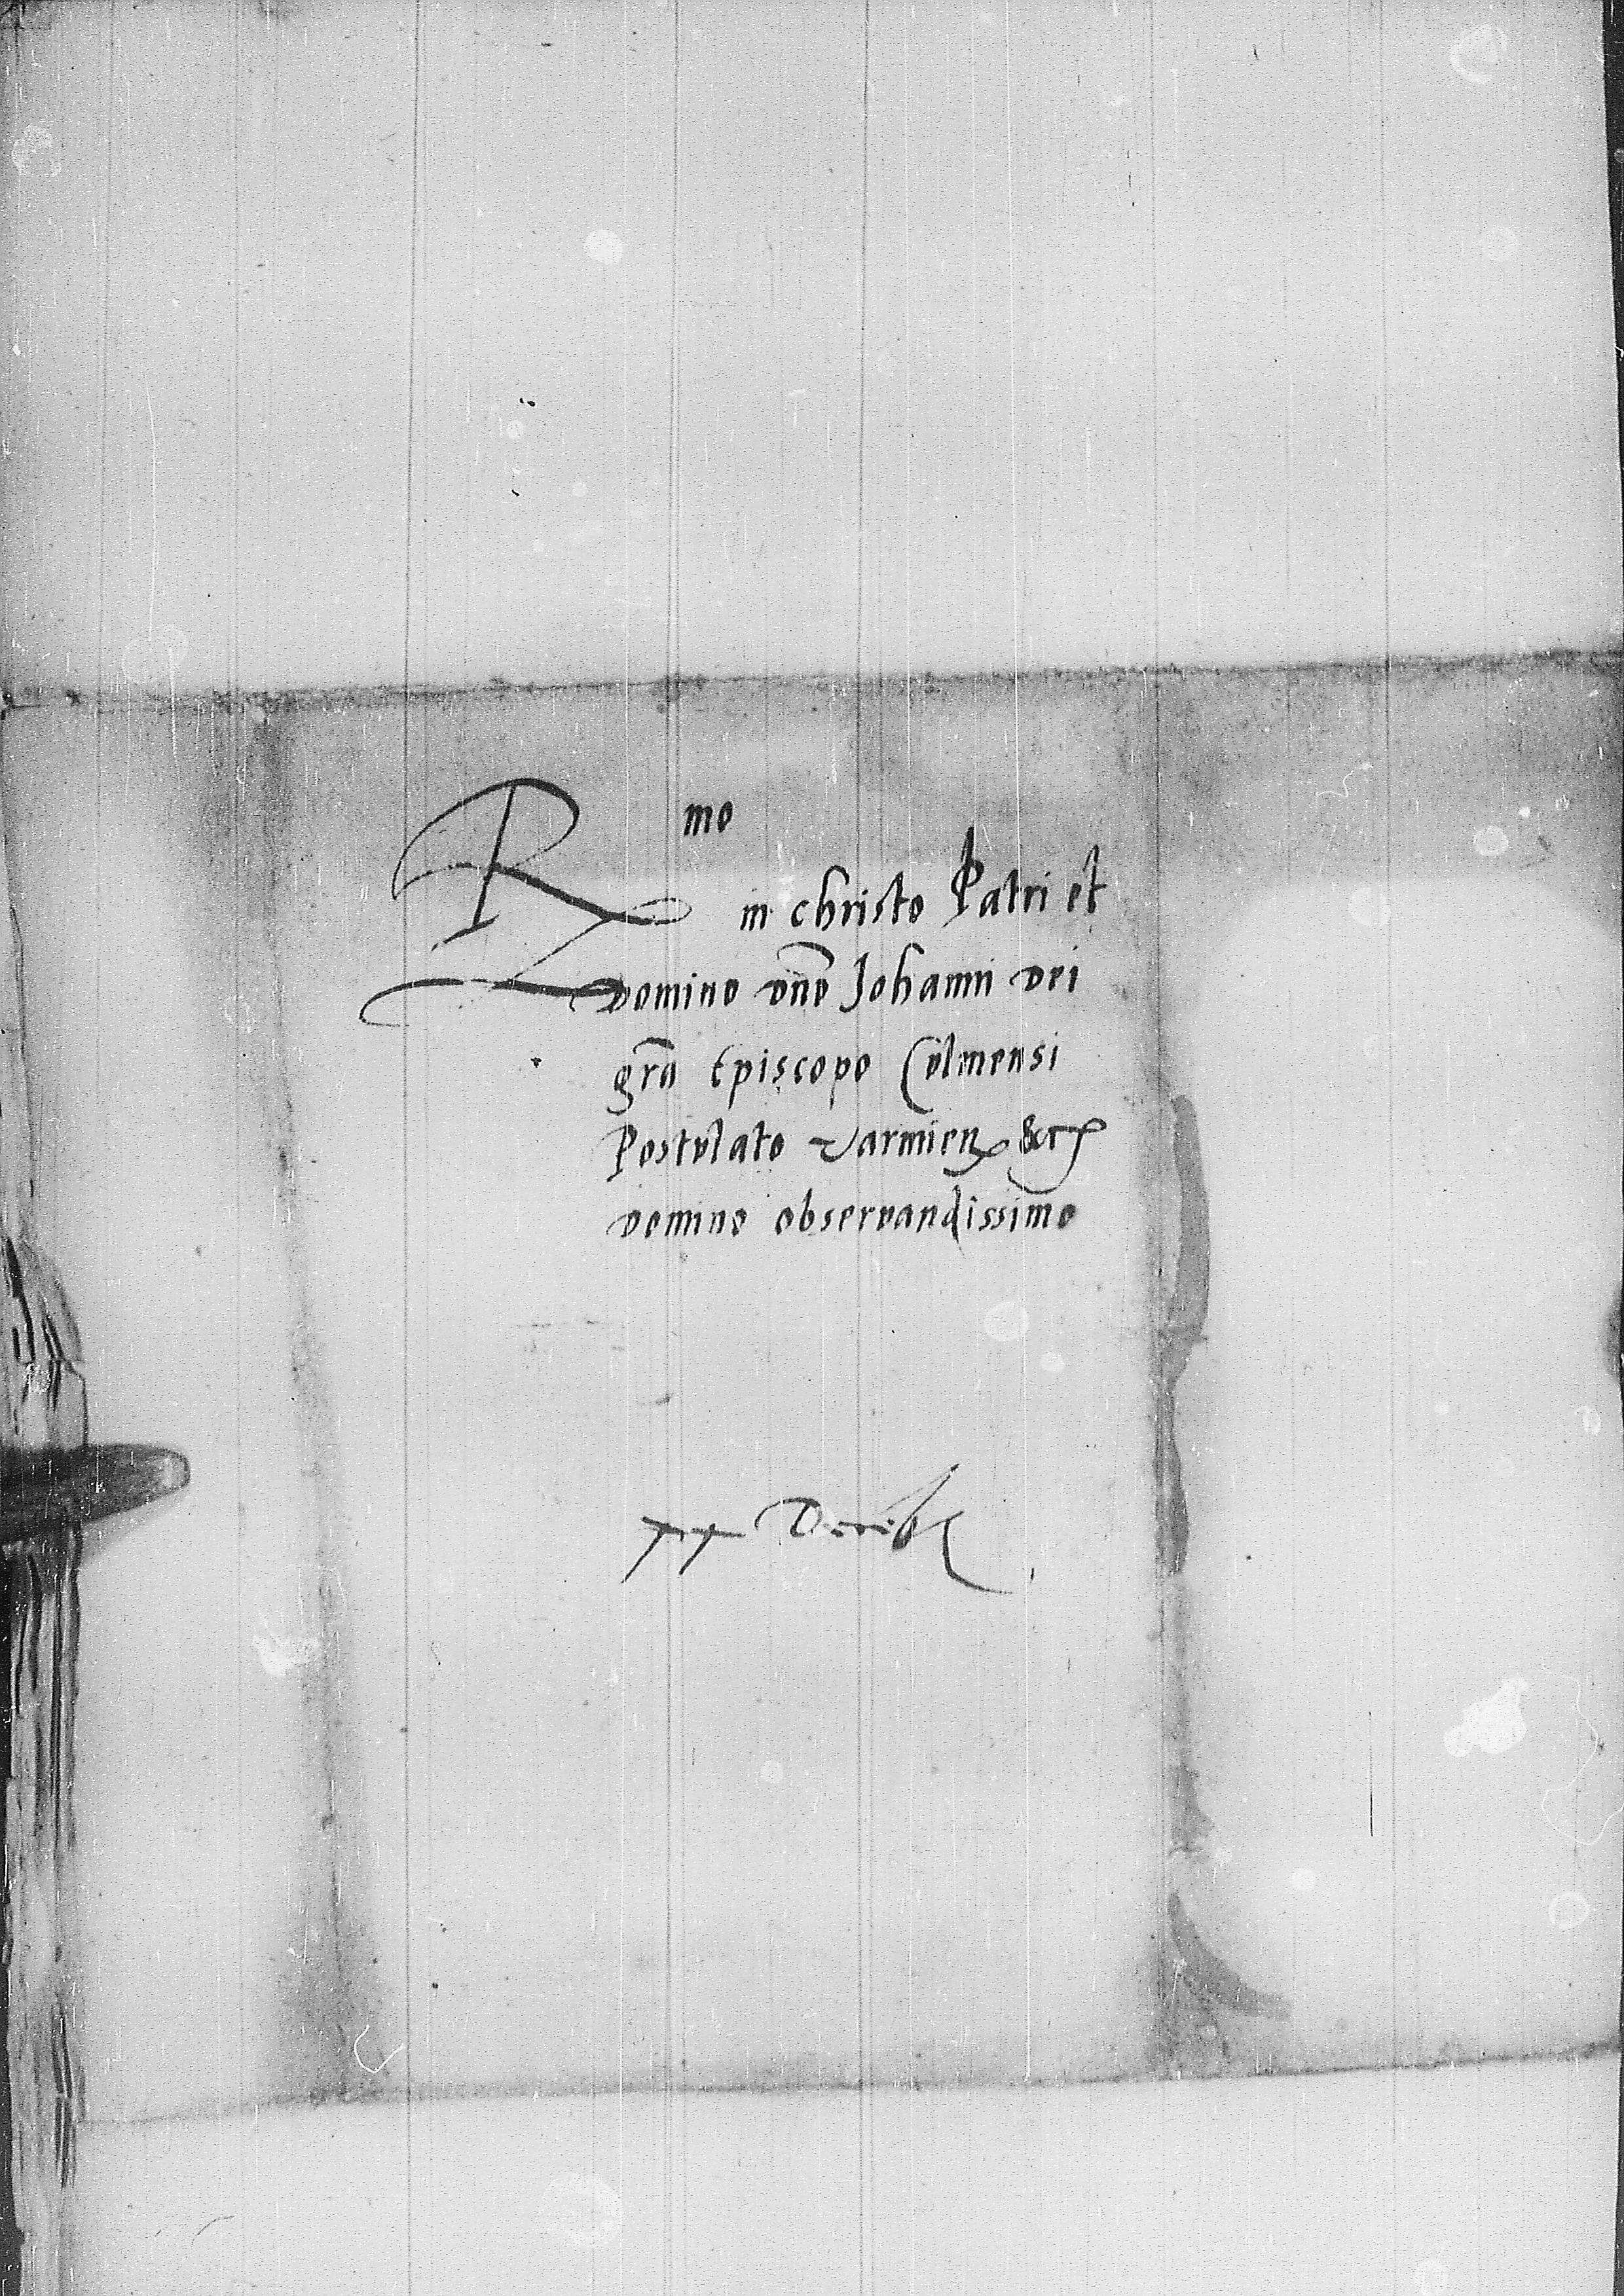 Rmo
in christo Patri et
domino dno Johanni dei
gra Episcopo Culmensi
Postulato Varmien &c
domino observandissimo
xx Decemb